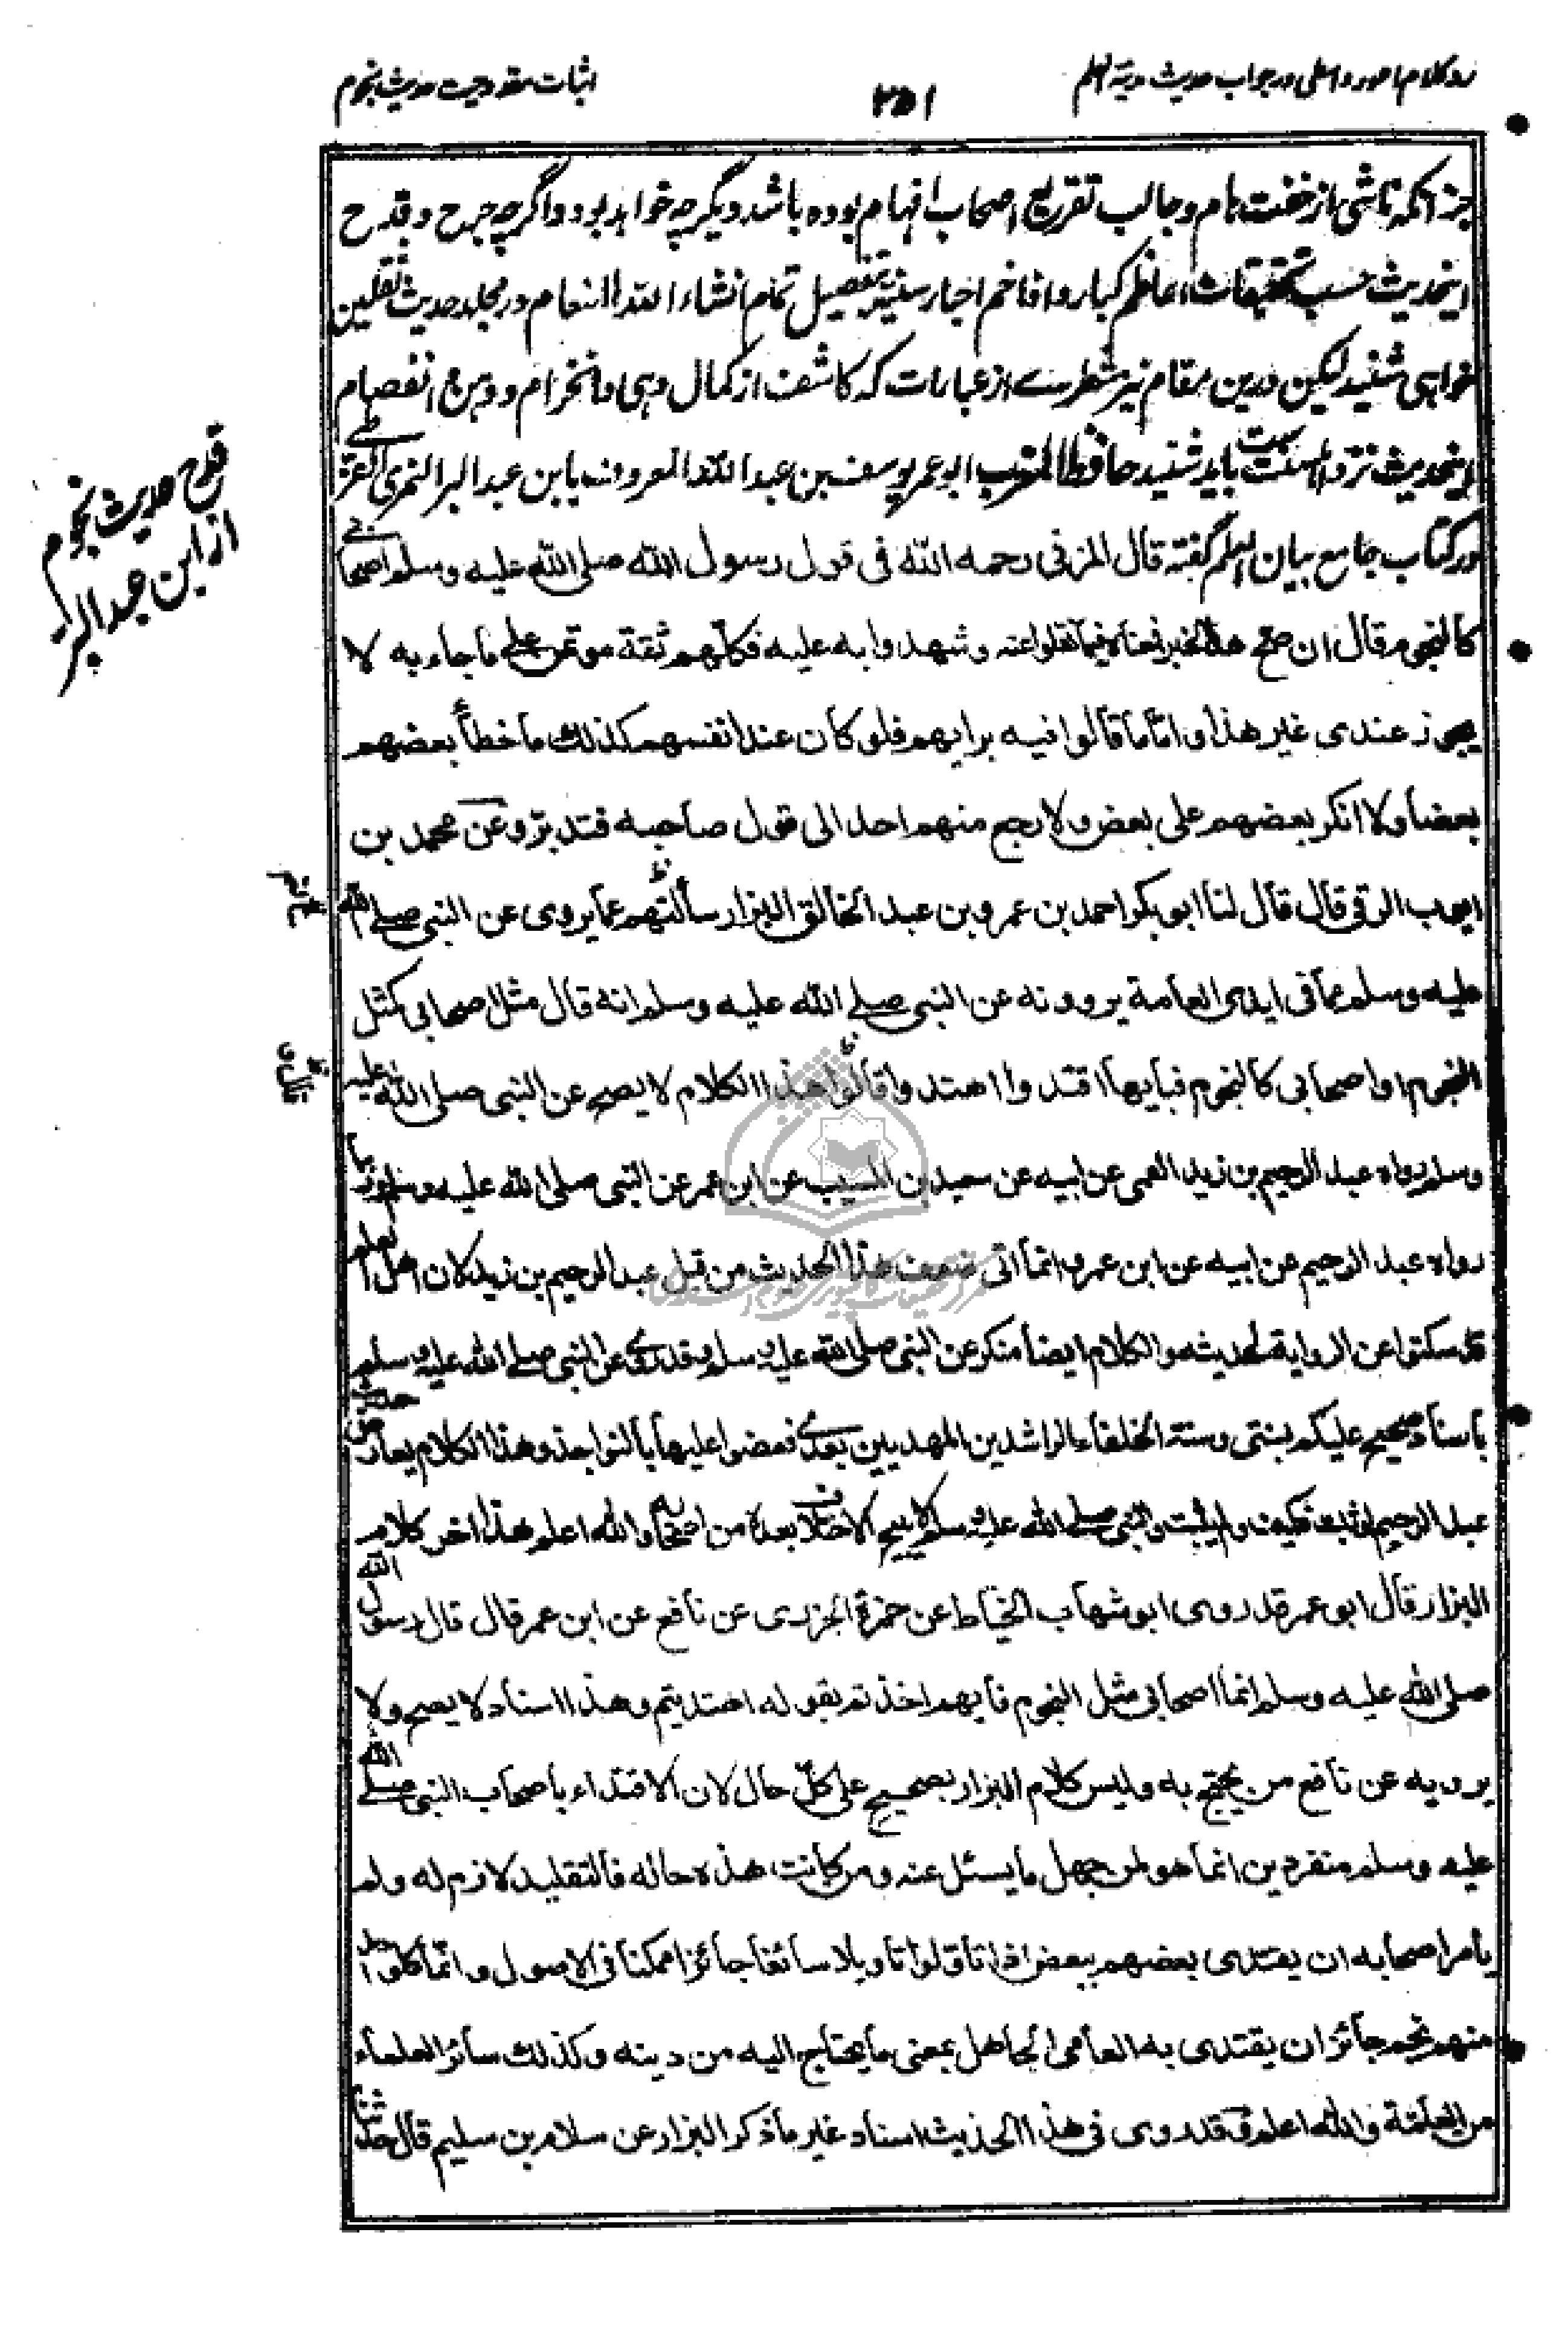 رد کلام احمد واسطی در جواب حدیث مدینة العلم
۲۵۱
اثبات مقدوحیت حدیث نجوم
جز آنکه ناشی از خفت تام و جالب تقریع اصحاب افهام بوده باشد دیگر چه خواهد بود و اگرچه جرح و قدح
اینحدیث حسب تحقیقات اعاظم کبار و افاخم احبار سنیه بتفصیل تمام انشاء الله المنعام در مجلد حدیث ثقلین
خواهی شنید لیکن درین مقام نیز شطرے از عبارات که کاشف از کمال وهی و انخرام و وهن و انفصام
اینحدیث نزد اهلسنت ست باید شنید حافظ المغرب ابو عمر یوسف بن عبد الله المعروف بابن عبد البر النمری القرطبے
در کتاب جامع بیان العلم گفته قال المزنی رحمه الله فی قول رسول الله صلی الله علیه وسلم اصحابے
کالنجوم قال ان صح هذا الخبر فمعناه فیما نقلوا عنه و شهدوا به علیه فکلهم ثقة مؤتمن علی ما جاء به لا
یجوز عندی غیر هذا و اما ما قالوا فیه برایهم فلو کان عند انفسهم کذلك ما خطأ بعضهم
بعضا ولا انکر بعضهم علی بعض ولا رجع منهم احد الی قول صاحبه فتدبر و عن محمد بن
ایوب الرقی قال قال لنا ابو بکر احمد بن عمرو بن عبد الخالق البزار سألتهم عما یروی عن النبی صلے الله
علیه وسلم مما فی ایدی العامة یروونه عن النبی صلے الله علیه وسلم انه قال مثل اصحابی کمثل
النجوم او اصحابی کالنجوم فبایها اقتدوا اهتدوا قالوا هذا الکلام لا یصح عن النبی صلی الله علیه
وسلم رواه عبد الرحیم بن زید العمی عن ابیه عن سعید بن المسیب عن ابن عمر عن النبی صلی الله علیه وسلم و ربما
رواه عبد الرحیم عن ابیه عن ابن عمر و انما اتی ضعف هذا الحدیث من قبل عبد الرحیم بن زید لان اهل العلم
قد سکتوا عن الروایة لحدیثه و الکلام ایضا منکر عن النبی صلی الله علیه وسلم و قد روی عن النبی صلے الله علیه وسلم
باسناد صحیح علیکم بسنتی و سنة الخلفاء الراشدین المهدیین بعدی فعضوا علیها بالنواجذ و هذا الکلام یعارض حدیث
عبد الرحیم لو ثبت فکیف ولم یثبت و النبی صلے الله علیه وسلم لا یبیح الاختلاف بعده من اصحابه و الله اعلم هذا اخر کلام
البزار قال ابو عمر قد روی ابو شهاب الخیاط عن حمزة الجزری عن نافع عن ابن عمر قال قال رسول الله
صلی الله علیه وسلم انما اصحابی مثل النجوم فایهم اخذتم بقوله اهتدیتم و هذا اسناد لا یصح ولا
یرویه عن نافع من یحتج به و لیس کلام البزار بصحیح علی کل حال لان الاقتداء باصحاب النبی صلے الله
علیه وسلم منفردین انما هو لمن جهل ما یسئل عنه و من کانت هذه حاله فالتقلید لازم له ولم
یأمر اصحابه ان یقتدی بعضهم ببعض اذا تاولوا تاویلا سائغا جائزا ممکنا فی الاصول و انما کل واحد
منهم نجم جائز ان یقتدی به العامی الجاهل بمعنی ما یحتاج الیه من دینه و کذلك سائر العلماء
من العامة و الله اعلم و قد روی فی هذا الحدیث اسناد غیر ما ذکر البزار عن سلام بن سلیم قال حدثنا
قدح حدیث نجوم
از ابن عبد البر